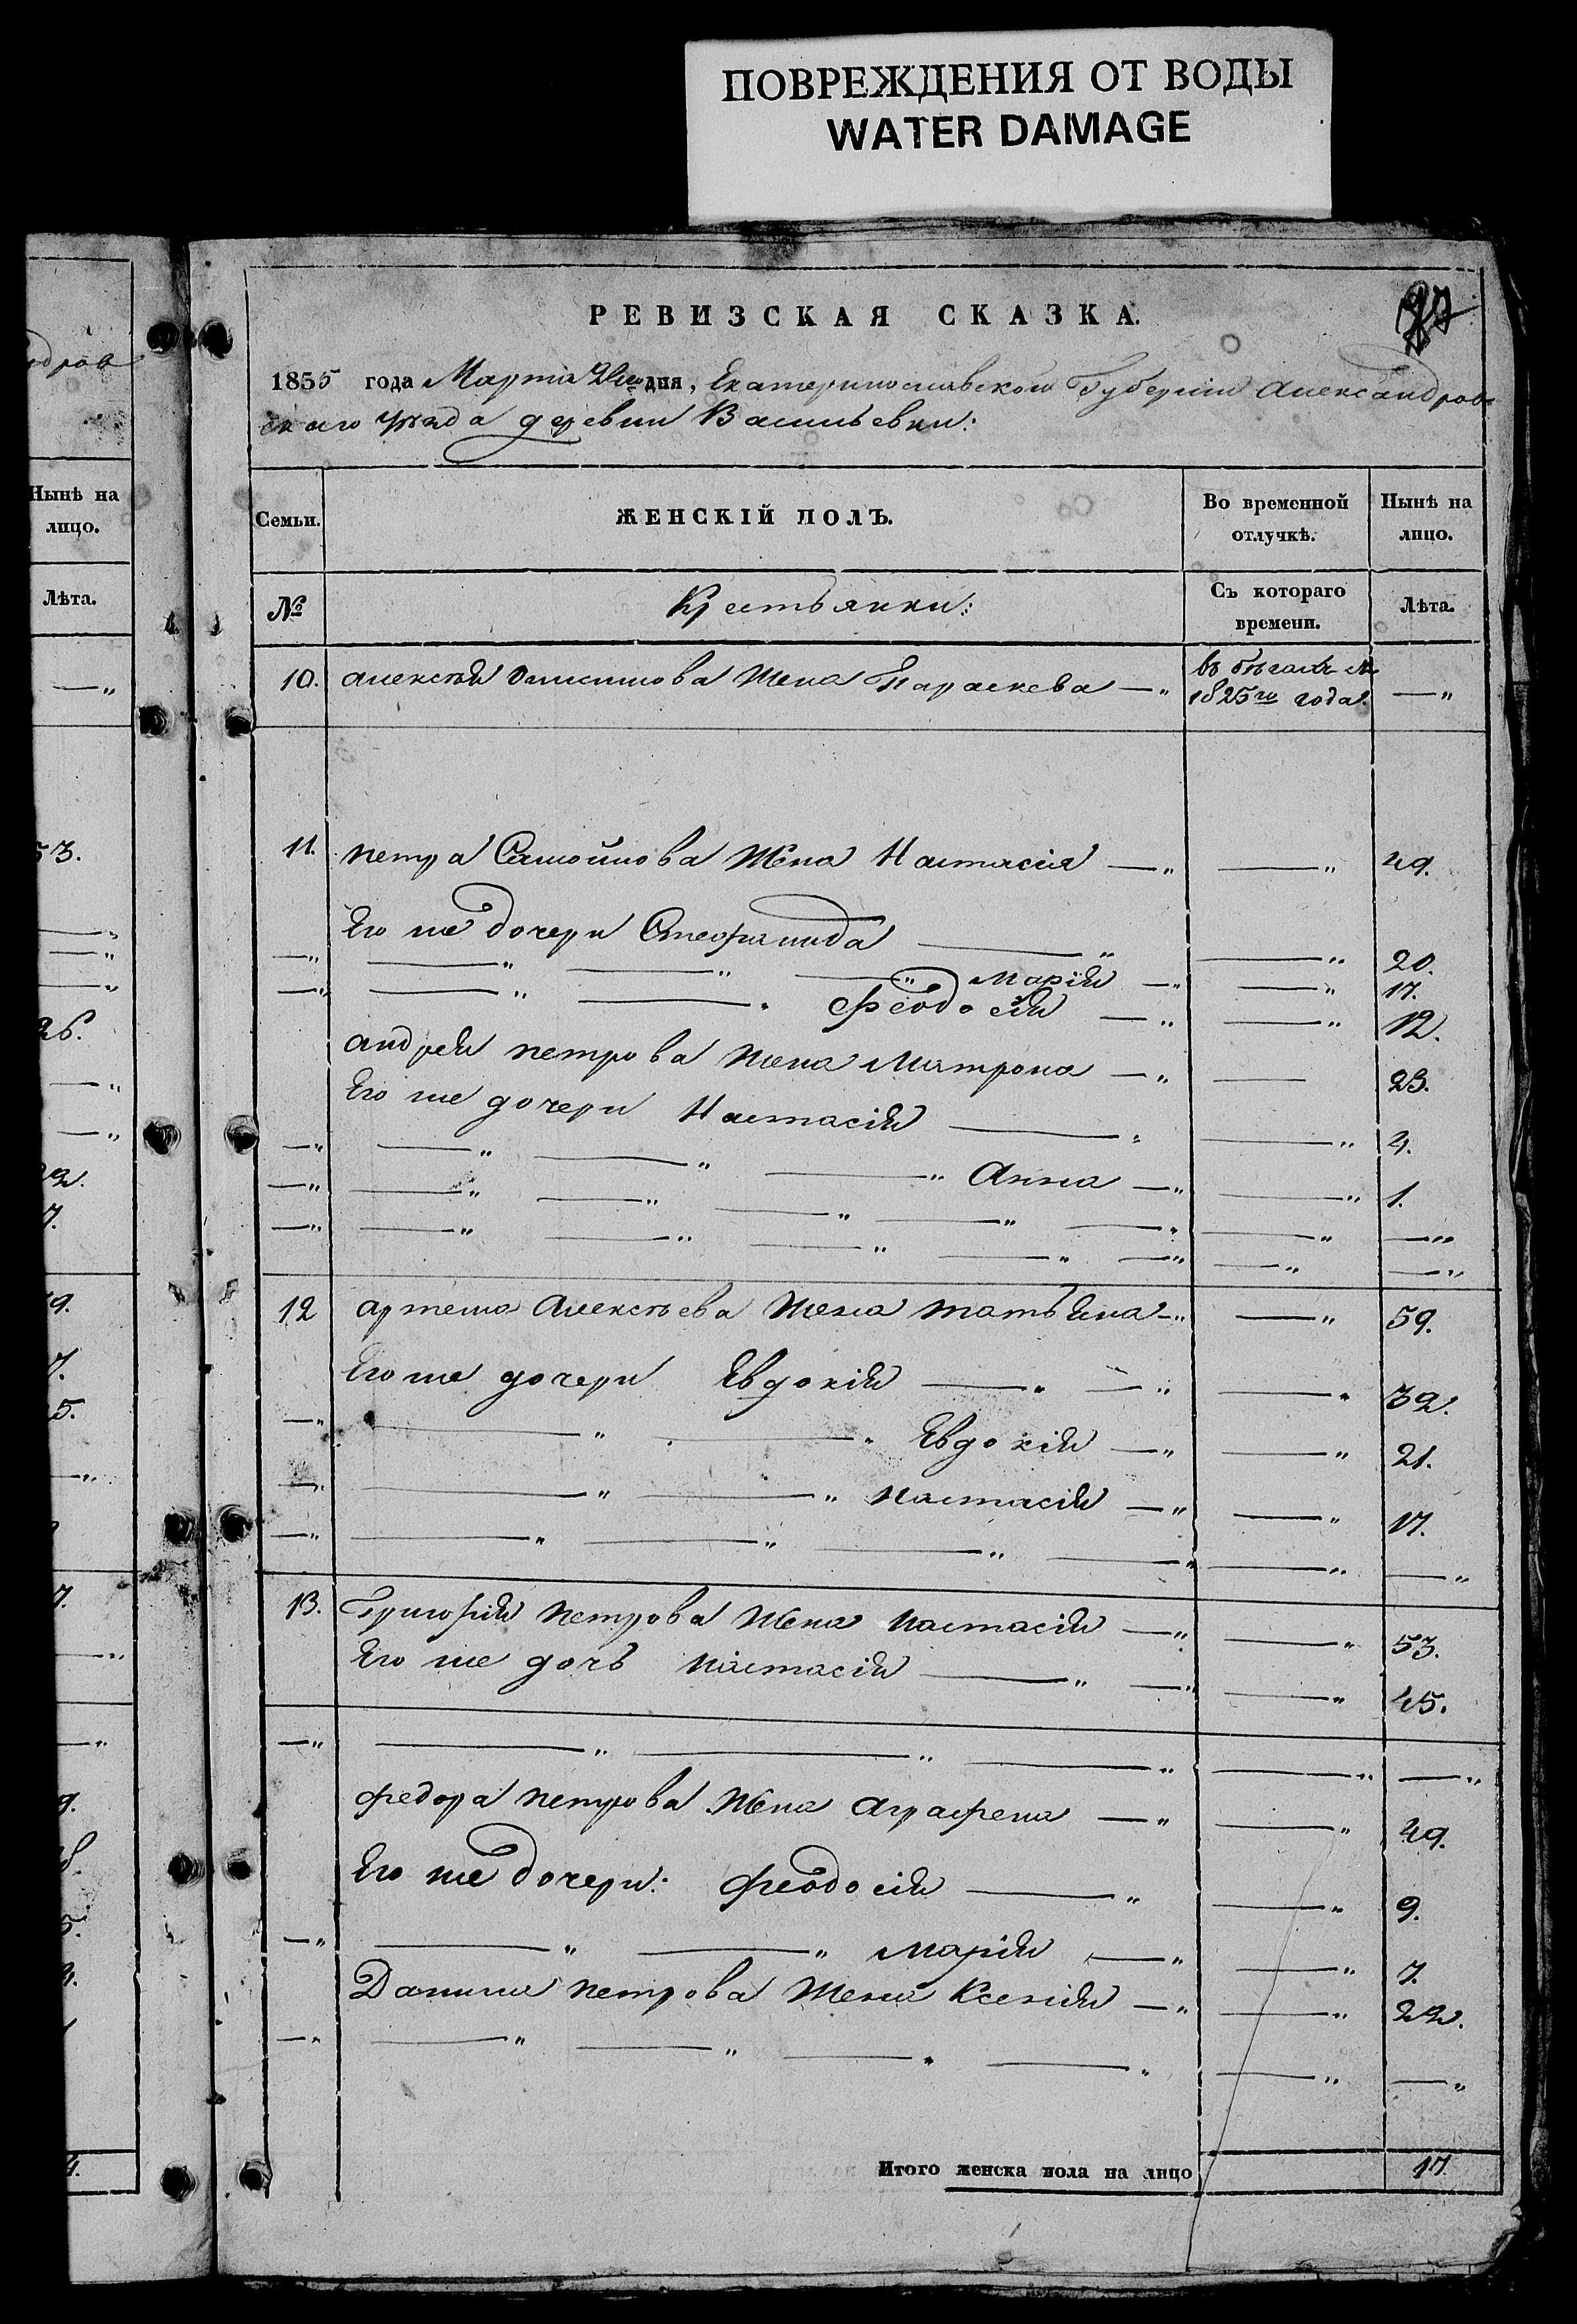 ПОВРЕЖДЕНИЯ ОТ ВОДЫ
WATER DAMAGE
РЕВИЗСКАЯ СКАЗКА.
1855 года Марта дня, Екатеринославской Губернии Александров
скаго уѣзда деревни Васильевки:
дров
Нынѣ на
лицо.
Лѣта.
Семьи.
ЖЕНСКІЙ ПОЛЪ.
Во временной
отлучкѣ.
Нынѣ на
лицо.
№
Крестьянки:
Съ котораго
времени.
Лѣта.
10. Алексѣя жена Параскева —„ въ бѣгахъ съ
1825го года. —„
11. Петра Самойлова жена Настасія —„ —„ 49.
Его же дочери Стефанида —„ —„ 20.
—„ —„ —„ —„ Марія —„ —„ 17.
—„ —„ —„ Феодосія —„ —„ 12.
Андрея Петрова жена Матрона —„ — 23.
Его же дочери Настасія —„ —„ 4.
—„ —„ —„ —„ Анна —„ —„ 1.
—„ —„ —„ —„ —„ —„ —„ —„
—„ —„ —„ —„ —„ —„ —„ —„
12 Артема Алексѣева жена Татьяна —„ —„ 59.
Его же дочери Евдокія —„ —„ —„ 32.
—„ —„ —„ Евдокія —„ —„ 21.
—„ —„ —„ Настасія —„ —„ 17.
—„ —„ —„ —„ —„ —„ —„
13. Григорія Петрова жена Настасія —„ —„ 53.
Его же дочь Настасія —„ —„ —„ 45.
—„ —„ —„ —„ —„ —„
Федора Петрова жена Аграфена —„ —„ 49.
Его же дочери: Феодосія —„ —„ 9.
—„ —„ —„ Марія —„ —„ 7.
Данила Петрова жена Ксенія —„ —„ 22.
—„ —„ —„ —„ —„ —„ —„
Итого женска пола на лицо 17